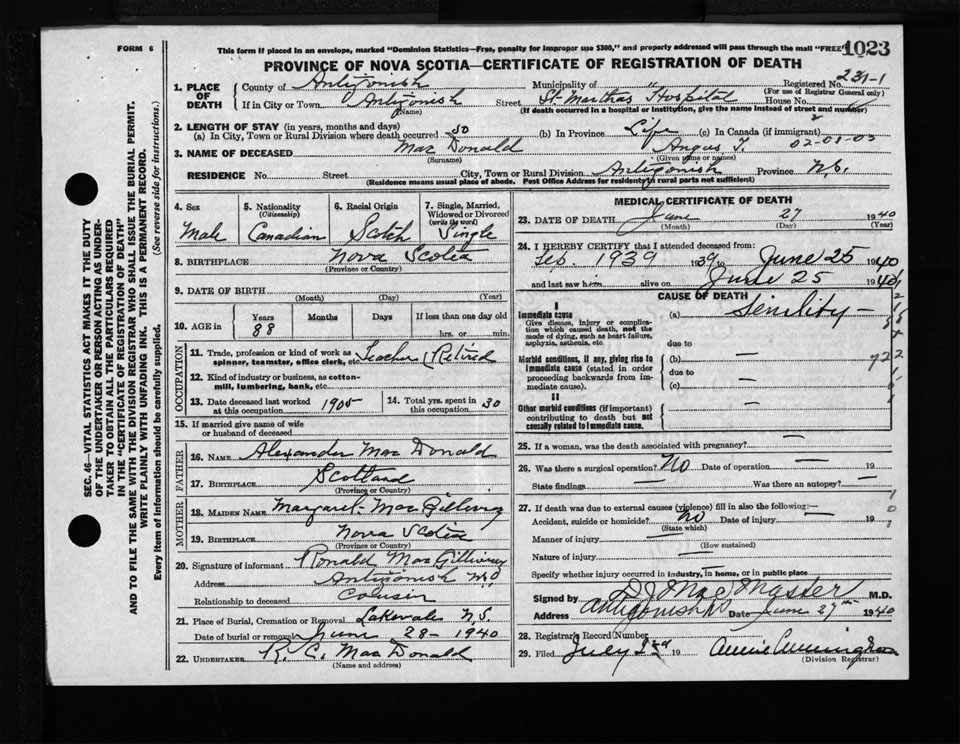 FORM 6
This form if placed in an envelope, marked "Dominion Statistics—Free, penalty for improper use $300," and properly addressed will pass through the mail "FREE"
1023
PROVINCE OF NOVA SCOTIA—CERTIFICATE OF REGISTRATION OF DEATH
1. PLACE OF DEATH
County of Antigonish Municipality of " Registered No. 231-1
(For use of Registrar General only)
If in City or Town Antigonish Street St. Martha's Hospital House No.
(Name) (If death occurred in a hospital or institution, give the name instead of street and number)
2. LENGTH OF STAY (in years, months and days)
(a) In City, Town or Rural Division where death occurred 50 (b) In Province Life (c) In Canada (if immigrant)
3. NAME OF DECEASED Mac Donald Angus J. 02-03-03
(Surname) (Given name or names)
RESIDENCE No. Street City, Town or Rural Division Antigonish Province N.S.
(Residence means usual place of abode. Post Office Address for residents in rural parts not sufficient)
4. Sex Male
5. Nationality (Citizenship) Canadian
6. Racial Origin Scotch
7. Single, Married, Widowed or Divorced (write the word) Single
8. BIRTHPLACE Nova Scotia
(Province or Country)
9. DATE OF BIRTH
(Month) (Day) (Year)
10. AGE in Years 88 Months Days If less than one day old
hrs. or min.
OCCUPATION
11. Trade, profession or kind of work as spinner, teamster, office clerk, etc. Teacher (Retired
12. Kind of industry or business, as cotton-mill, lumbering, bank, etc.
13. Date deceased last worked at this occupation 1905
14. Total yrs. spent in this occupation 30
15. If married give name of wife or husband of deceased
FATHER
16. NAME Alexander Mac Donald
17. BIRTHPLACE Scotland
(Province or Country)
MOTHER
18. MAIDEN NAME Margaret Mac Gillivray
19. BIRTHPLACE Nova Scotia
(Province or Country)
20. Signature of informant Ronald MacGillivray
Address Antigonish N.S
Relationship to deceased Cousin
21. Place of Burial, Cremation or Removal Lakevale N.S.
Date of burial or removal June 28 - 1940
22. UNDERTAKER R. C. Mac Donald
(Name and address)
MEDICAL CERTIFICATE OF DEATH
23. DATE OF DEATH June 27 1940
(Month) (Day) (Year)
24. I HEREBY CERTIFY that I attended deceased from:
Sep. 1939 1939 to June 25 1940
and last saw him alive on June 25 1940
CAUSE OF DEATH
I
Immediate cause
Give disease, injury or complication which caused death, not the mode of dying, such as heart failure, asphyxia, asthenia, etc.
(a) Senility —
due to
Morbid conditions, if any, giving rise to immediate cause (stated in order proceeding backwards from immediate cause).
(b) —
due to
(c) —
II
Other morbid conditions (if important) contributing to death but not causally related to immediate cause.
—
25. If a woman, was the death associated with pregnancy? —
26. Was there a surgical operation? No Date of operation — 19
State findings — Was there an autopsy? —
27. If death was due to external causes (violence) fill in also the following:—
Accident, suicide or homicide? No Date of injury — 19
(State which)
Manner of injury —
(How sustained)
Nature of injury —
Specify whether injury occurred in industry, in home, or in public place
Signed by MacMaster M.D.
Address Antigonish NS Date June 27th 1940
28. Registrar's Record Number
29. Filed July 19 Annie Cunningham
(Division Registrar)
SEC. 46—VITAL STATISTICS ACT MAKES IT THE DUTY
OF THE UNDERTAKER OR PERSON ACTING AS UNDERTAKER
TO OBTAIN ALL THE PARTICULARS REQUIRED
IN THE "CERTIFICATE OF REGISTRATION OF DEATH"
AND TO FILE THE SAME WITH THE DIVISION REGISTRAR WHO SHALL ISSUE THE BURIAL PERMIT.
WRITE PLAINLY WITH UNFADING INK. THIS IS A PERMANENT RECORD.
Every item of Information should be carefully supplied. (See reverse side for instructions.)